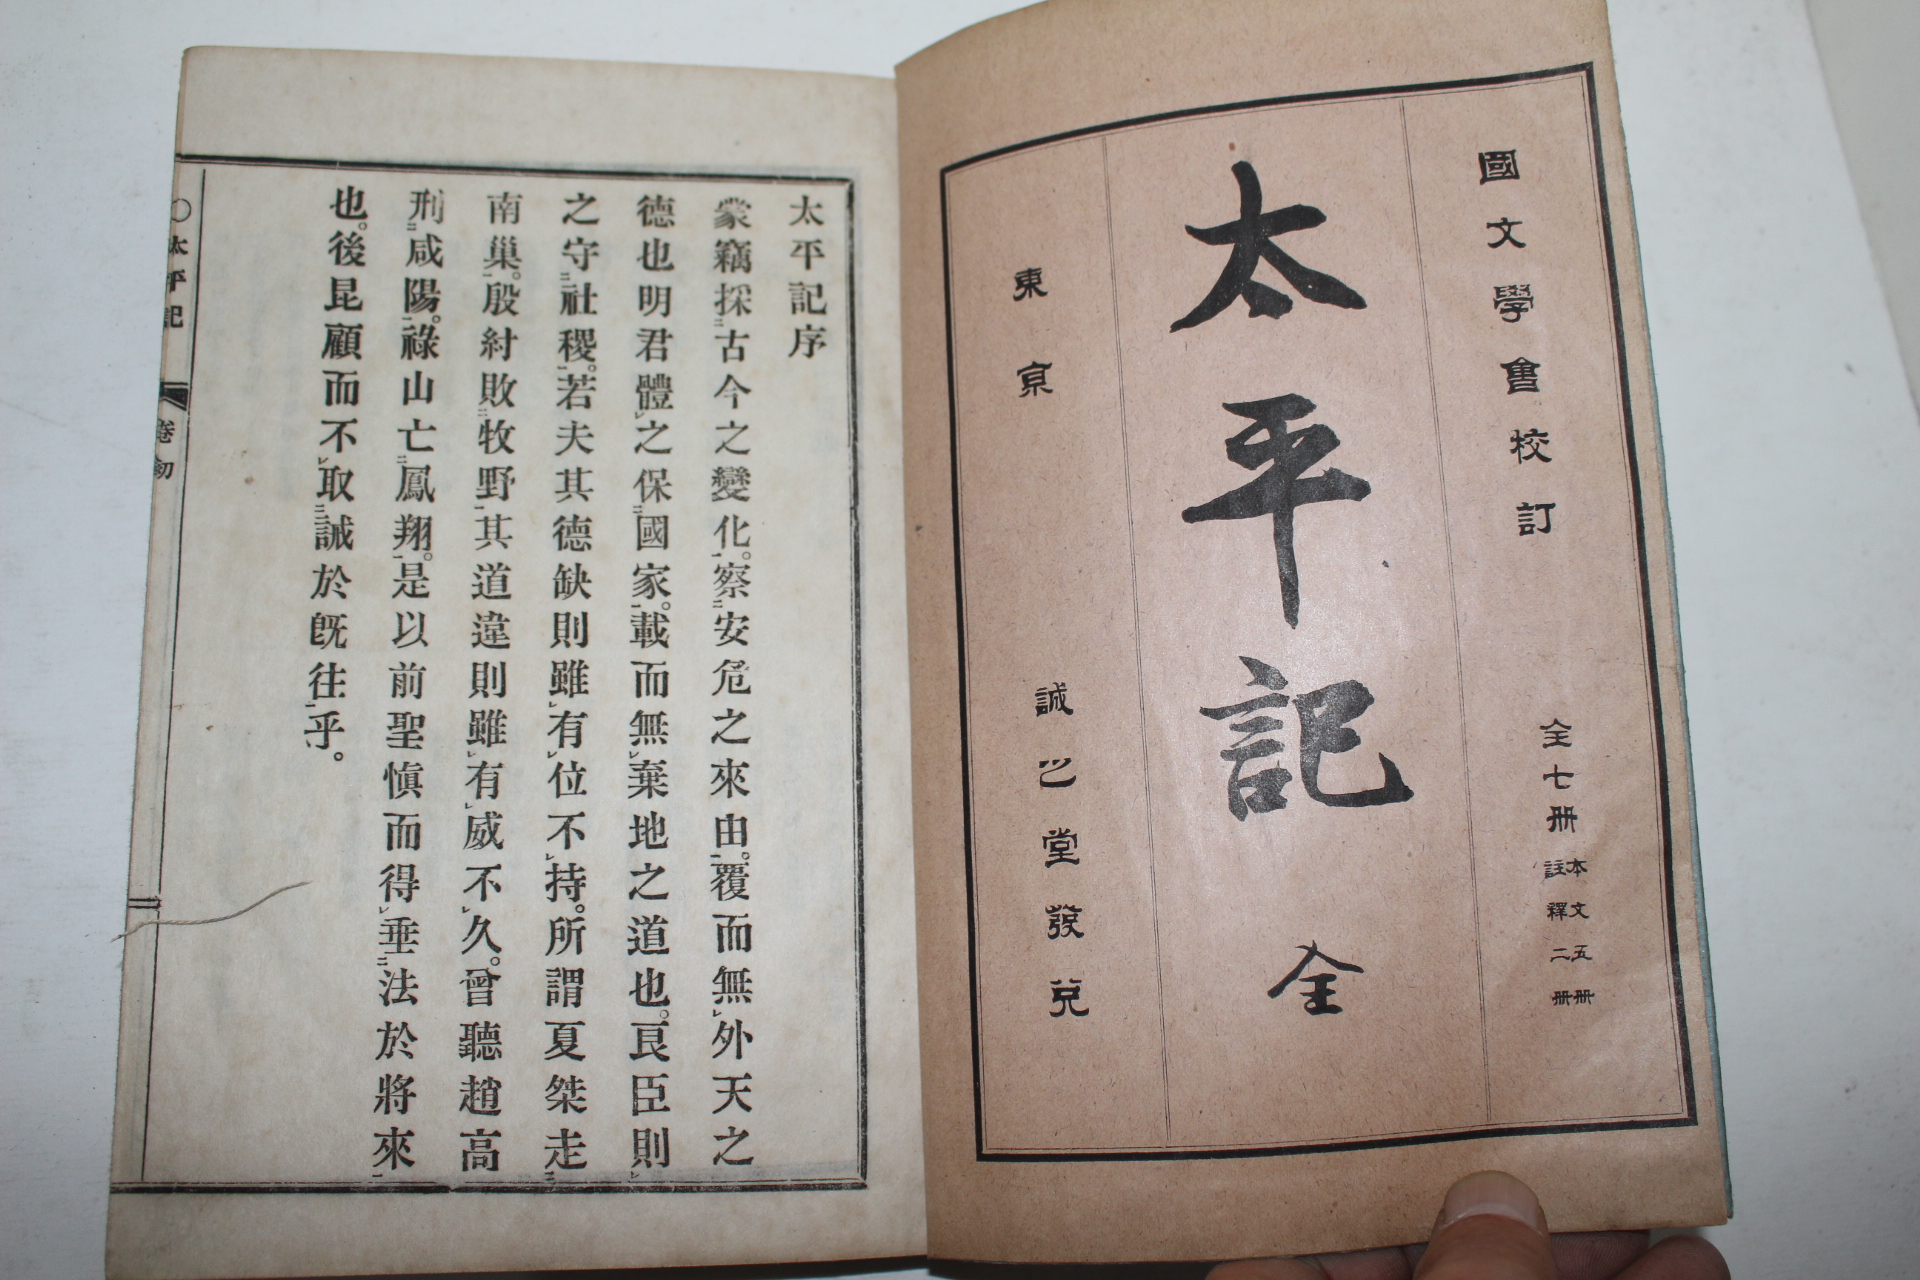 國文學會校訂
全七册
本文五册
註釋二册
太平記
全
東京
誠之堂發兌
太平記序
蒙竊採古今之變化。察安危之來由。覆而無外天之
德也明君體之保國家。載而無棄地之道也。良臣則
之守社稷。若夫其德缺則雖有位不持。所謂夏桀走
南巢。殷紂敗牧野其道違則雖有威不久。曾聽趙高
刑咸陽。祿山亡鳳翔。是以前聖愼而得垂法於將來
也。後昆顧而不取誡於旣往乎。
〇太平記
卷初